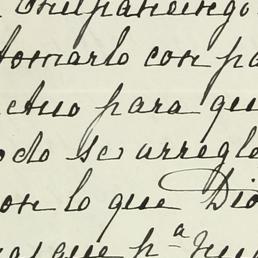 tomarlo con pa
ctuo para qu
odo se arregle
on lo que Dio
que pª